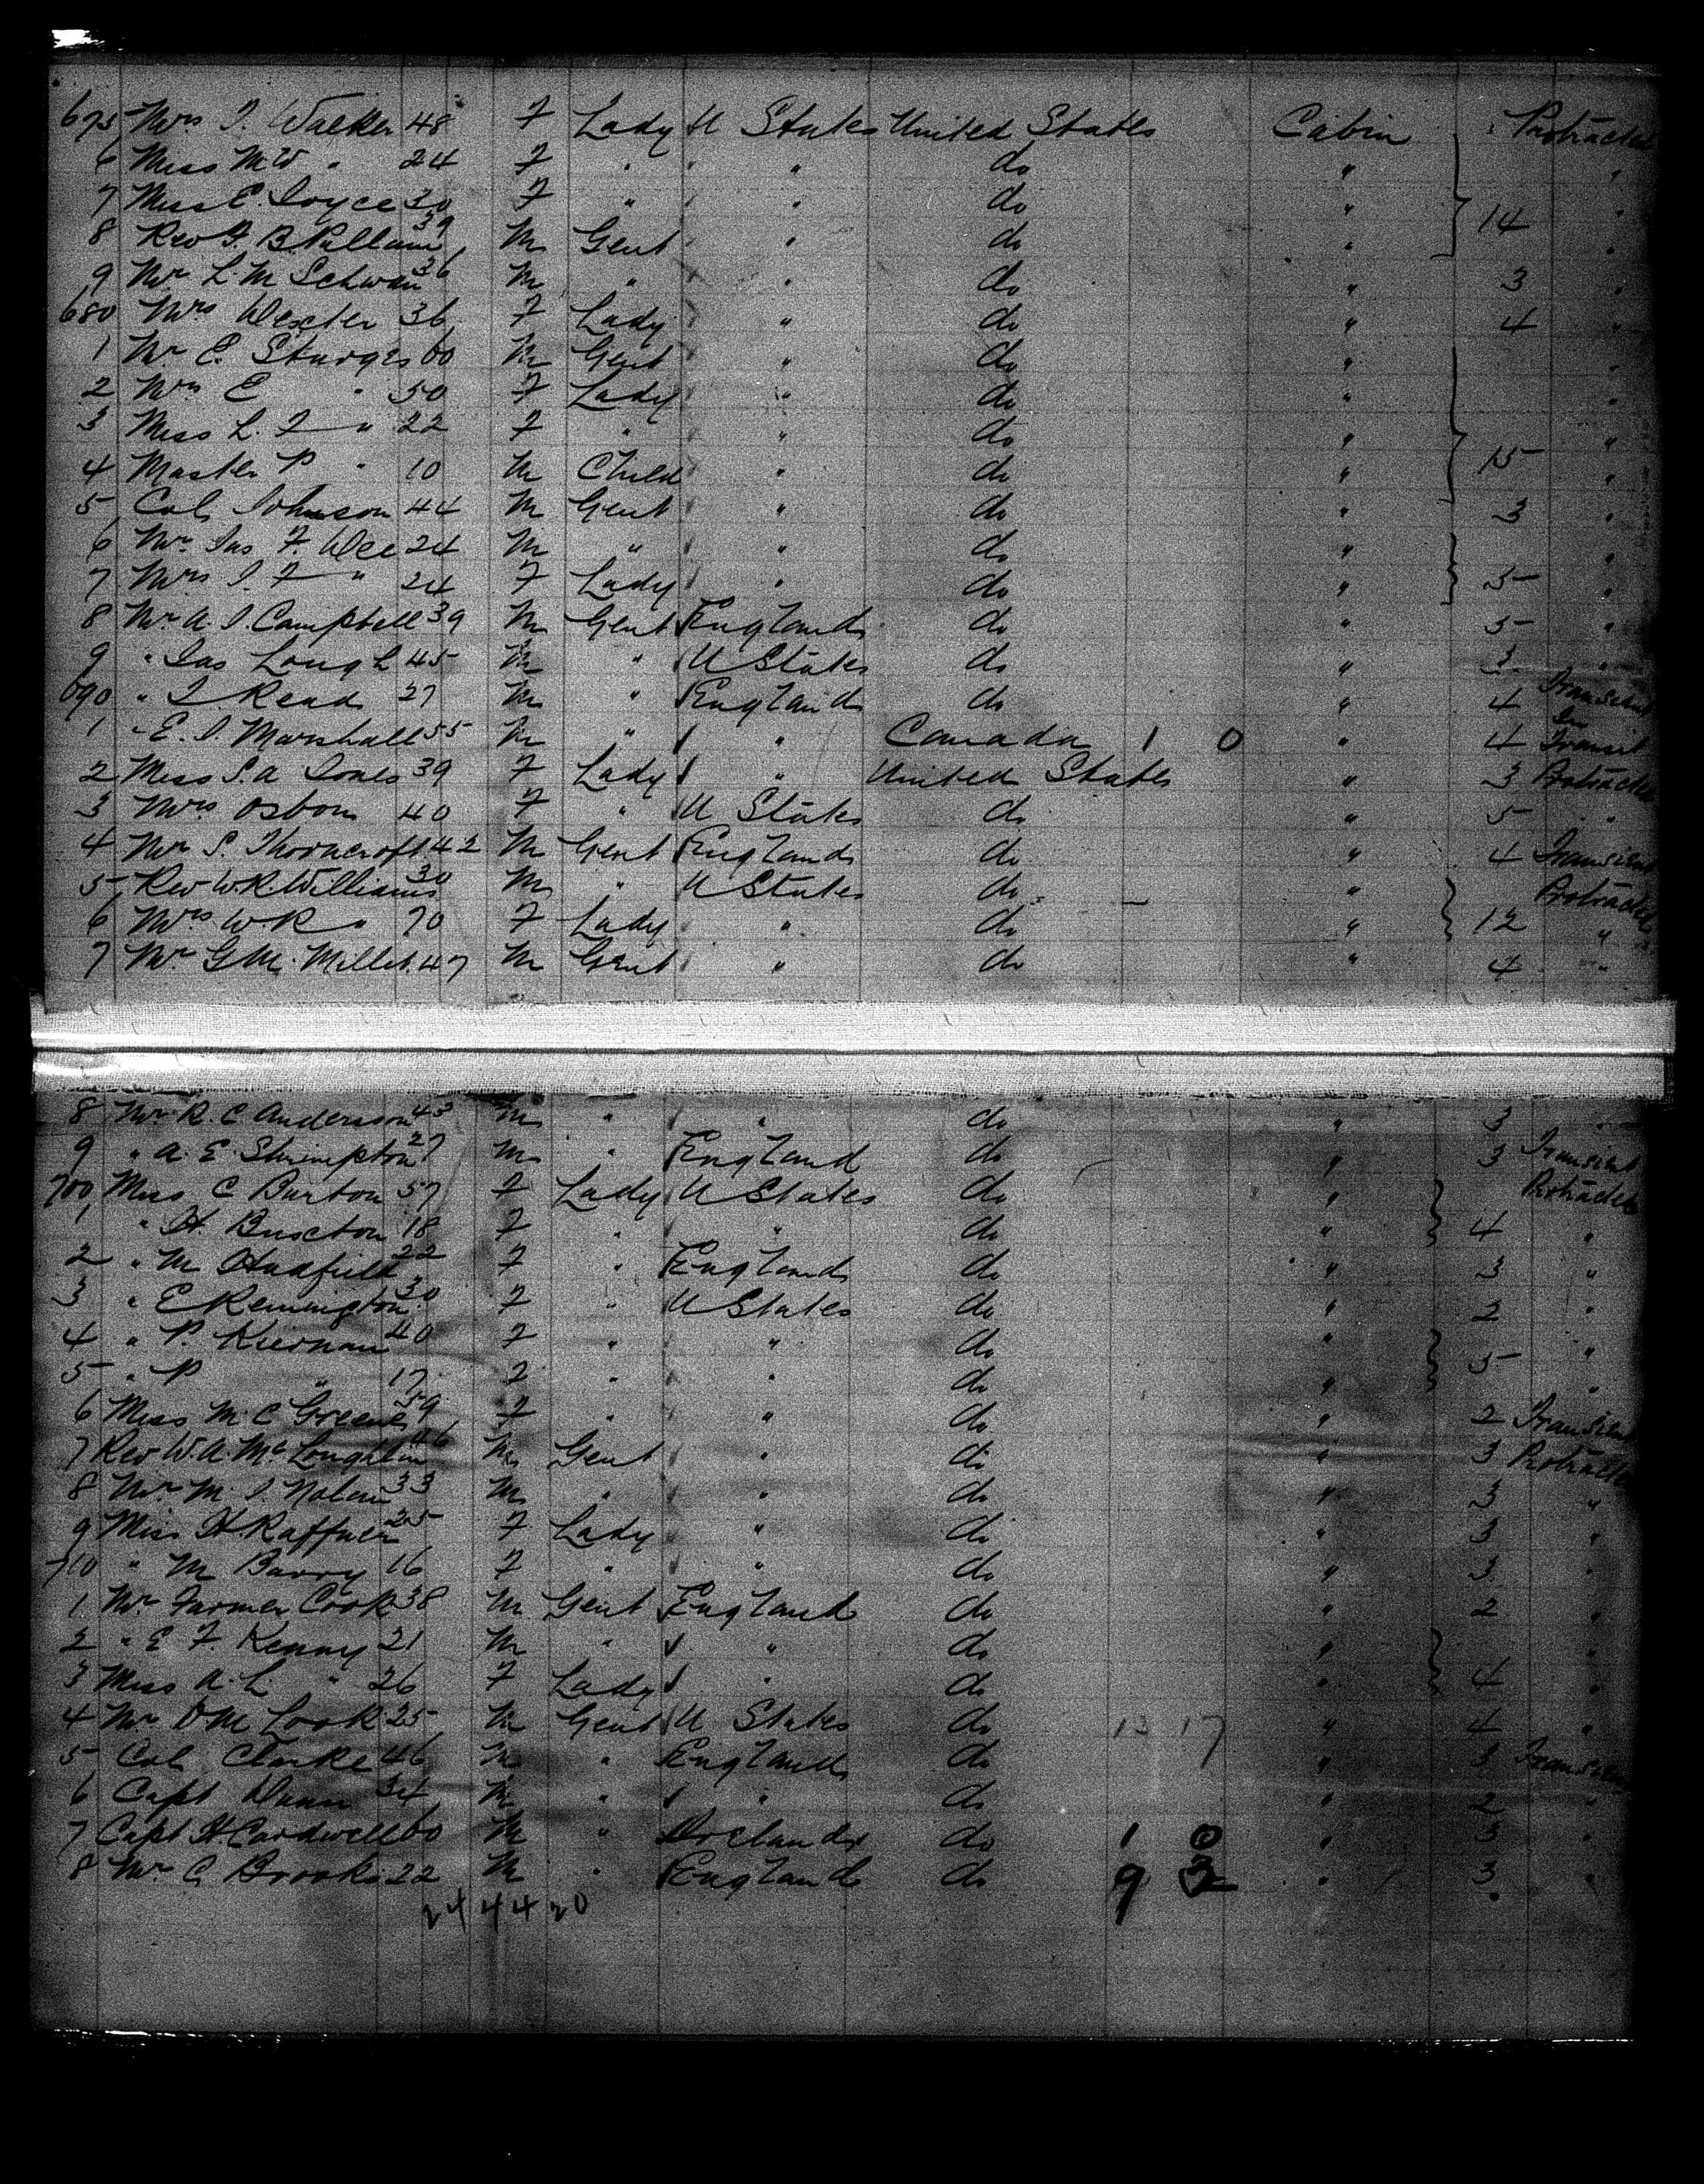 675 Mrs J. Walker 48 F Lady U States United States Cabin Protracted
6 Miss M W " 24 F " " do "
7 Miss E. Joyce 30 F " " do " "
8 Rev F. B. Pullam 39 M Gent " do " 14 "
9 Mr L. M Schwan 36 M " " do " 3 "
680 Mrs Dexter 36 F Lady " do " 4 "
1 Mr E. Sturges 60 M Gent " do " "
2 Mrs E " 50 F Lady " do " "
3 Miss L. F " 22 F " " do " "
4 Master P " 10 M Child " do " 15 "
5 Col Johnson 44 M Gent " do " 3 "
6 Mr Jas F. Dee 24 M " " do " "
7 Mrs J F " 24 F Lady " do " 5 "
8 Mr A. J. Campbell 39 M Gent England do " 5 "
9 " Jas Lough 45 M " U States do " 3 "
690 " J. Read 27 M " England do " 4 Transient
1 " E. J. Marshall 55 M " " Canada 1 0 " 4 In Transit
2 Miss S. A Jones 39 F Lady " United States " 3 Protracted
3 Mrs Osborn 40 F " U States do " 5 "
4 Mr S. Thorncroft 42 M Gent England do " 4 Transient
5 Rev W. R. Williams 30 M " U States do " Protracted
6 Mrs W R " 70 F Lady " do " 12 "
7 Mr G. M. Millet 47 M Gent " do " 4 "
8 Mr R. C. Anderson 43 M " " do " 3 "
9 " A. E. Shrimpton 27 M " England do " 3 Transient
700 Miss C Burton 57 F Lady U States do " Protracted
1 " H. Buxton 18 F " " do " 4 "
2 " M Hadfield 22 F " England do " 3 "
3 " E Remington 30 F " U States do " 2 "
4 " P. Kiernan 40 F " " do " "
5 " P " 17 F " " do " 5 "
6 Miss M. C Greene 59 F " " do " 2 Transient
7 Rev W. A. Mc Loughlin M Gent " do " 3 Protracted
8 Mr M. J. Nolan 33 M " " do " 3 "
9 Miss H. Raffner 25 F Lady " do " 3 "
710 " M Barry 16 F " " do " 3 "
1 Mr Farmer Cook 38 M Gent England do " 2 "
2 " E F. Kenny 21 M " " do " "
3 Miss A. L " 26 F Lady " do " 4 "
4 Mr D M Look 25 M Gent U States do 13 17 " 4 "
5 Col Clarke 46 M " England do " 3 Transient
6 Capt Dunn 34 M " " do " 2 "
7 Capt H. Cardwell 60 M " Ireland do 1 0 " 3 "
8 Mr C Brooks 22 M " England do 9 3 " 3 "
24 44 20